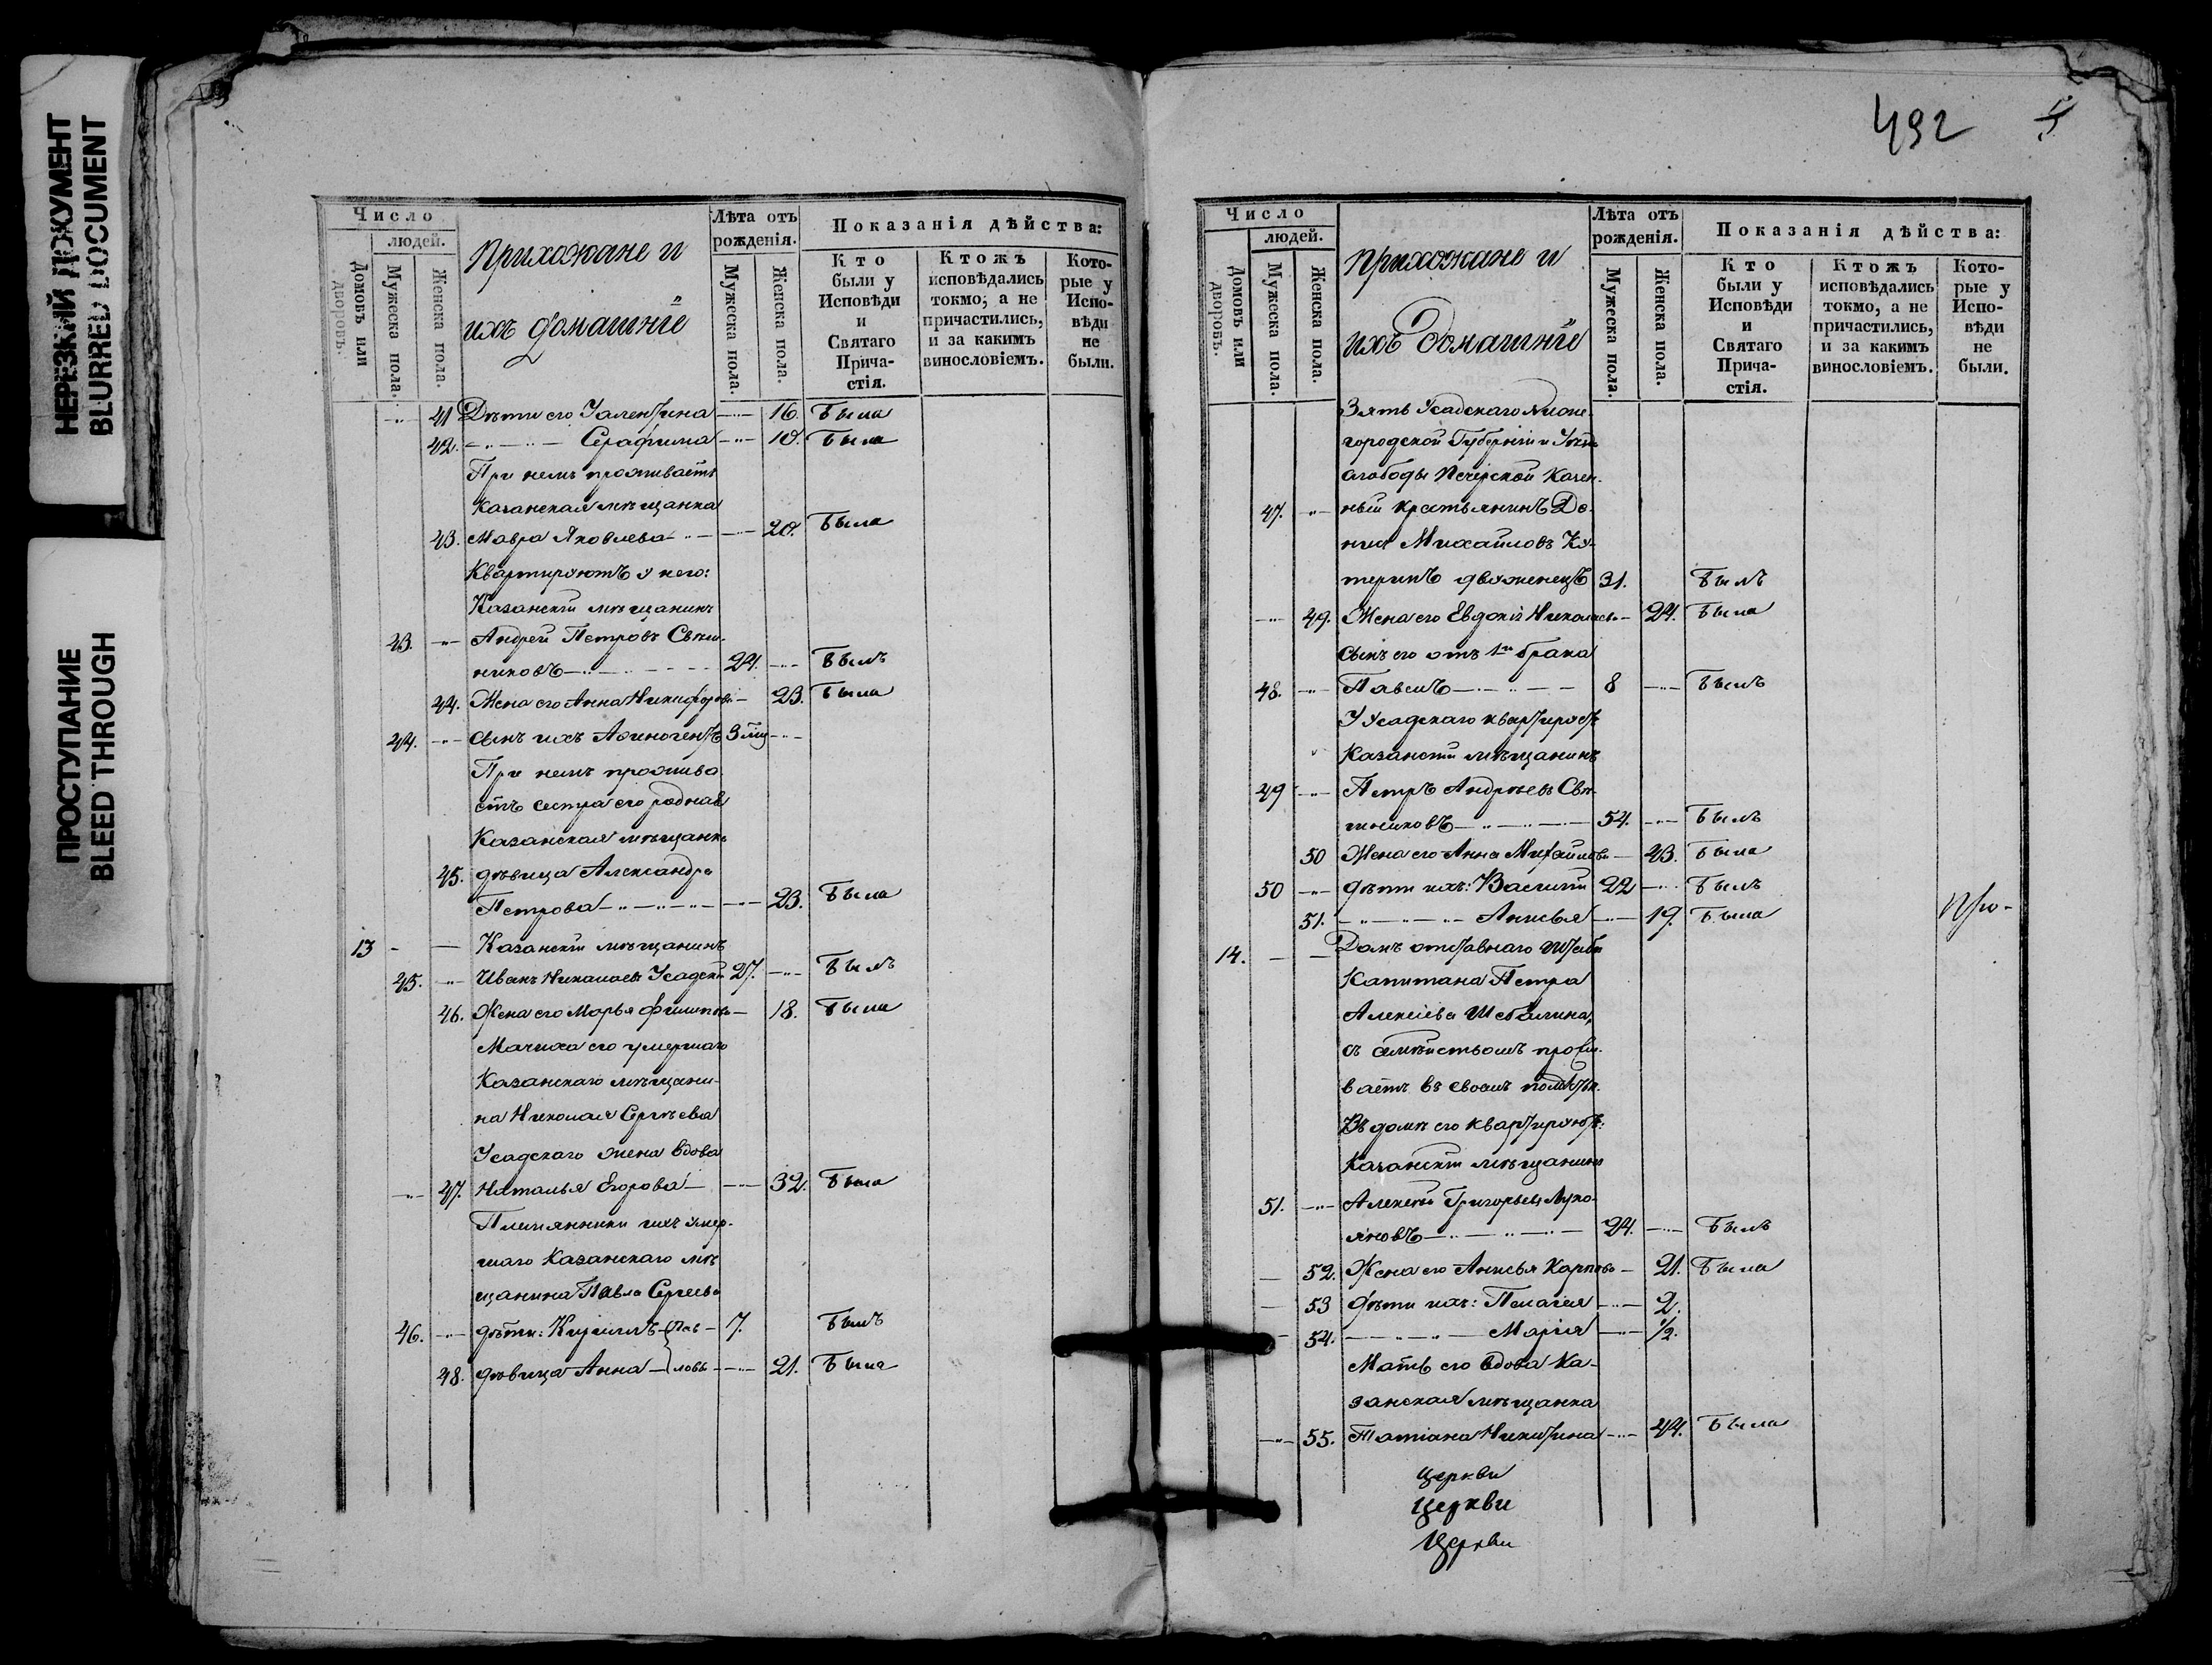 НЕРЕЗКИЙ ДОКУМЕНТ
BLURRED DOCUMENT
ПРОСТУПАНИЕ
BLEED THROUGH
Число
людей.
Домовъ или дворовъ.
Мужеска пола.
Женска пола.
Прихожане и
ихъ домашніе
Лѣта отъ рожденія.
Мужеска пола.
Женска пола.
Показанія дѣйства:
Кто были у Исповѣди и Святаго Прича-стія.
Ктожъ исповѣдались токмо, а не причастились, и за какимъ винословіемъ.
Кото-рые у Испо-вѣди не были.
41 Дѣти его Валентина 16. Была
42. Серафима 10. Была
При немъ проживаетъ
Казанская мѣщанка
43. Мавра Яковлева 20. Была
Квартируютъ у него:
Казанскій мѣщанинъ
43. Андрей Петровъ Свѣш-
никовъ 24. Былъ
44. Жена его Анна Никифорова 23. Была
44. Сынъ ихъ Афиногенъ 3 мѣц
При немъ прожива
етъ сестра его родная
Казанская мѣщанка
45. дѣвица Александра
Петрова 23. Была
13 Казанскій мѣщанинъ
45. Иванъ Николаевъ Усадскій 27. Былъ
46. Жена его Марья Филипова 18. Была
Мачиха его умершаго
Казанскаго мѣщани-
на Николая Сергѣева
Усадскаго жена вдова
47. Наталья Егорова 32. Была
Племянники ихъ умер-
шаго Казанскаго мѣ
щанина Павла Сергеева
46. дѣти: Кириллъ Пав- 7. Былъ
48. дѣвица Анна ловы 21. Была
492
Число
людей.
Домовъ или дворовъ.
Мужеска пола.
Женска пола.
Прихожане и
ихъ домашніе
Лѣта отъ рожденія.
Мужеска пола.
Женска пола.
Показанія дѣйства:
Кто были у Исповѣди и Святаго Прича-стія.
Ктожъ исповѣдались токмо, а не причастились, и за какимъ винословіемъ.
Кото-рые у Испо-вѣди не были.
Зять Усадскаго Ниже-
городской Губерніи и Уѣзда
слободы Печерской Казен-
47. ный крестьянинъ До-
Михайловъ Ку-
теринъ двуженецъ 31. Былъ
49. Жена его Евдокія Николаева 24. Была
Сынъ его отъ 1го брака
48. Павелъ 8 Былъ
У Усадскаго квартируетъ
Казанскій мѣщанинъ
49 Петръ Андреевъ Свѣ-
шниковъ 54. Былъ
50 Жена его Анна Михайлова 43. Была
50 дѣти ихъ: Василій 22 Былъ
51. Анисья 19. Была
14. Домъ отставнаго Штабсъ
Капитана Петра
Алексіева Шебалина,
съ семействомъ прожи-
ваетъ въ своемъ помѣстьи.
Въ домѣ его квартируютъ:
Казанскій мѣщанинъ
51. Алексѣй Григорьевъ Луко-
яновъ 24. Былъ
52. Жена его Анисья Карпова 21. Была
53 дѣти ихъ: Пелагія 2.
54. Марія 1/2.
Мать его вдова Ка-
занская мѣщанка
55. Татіана Никитина 44. Была
Церкви
Церкви
Церкви